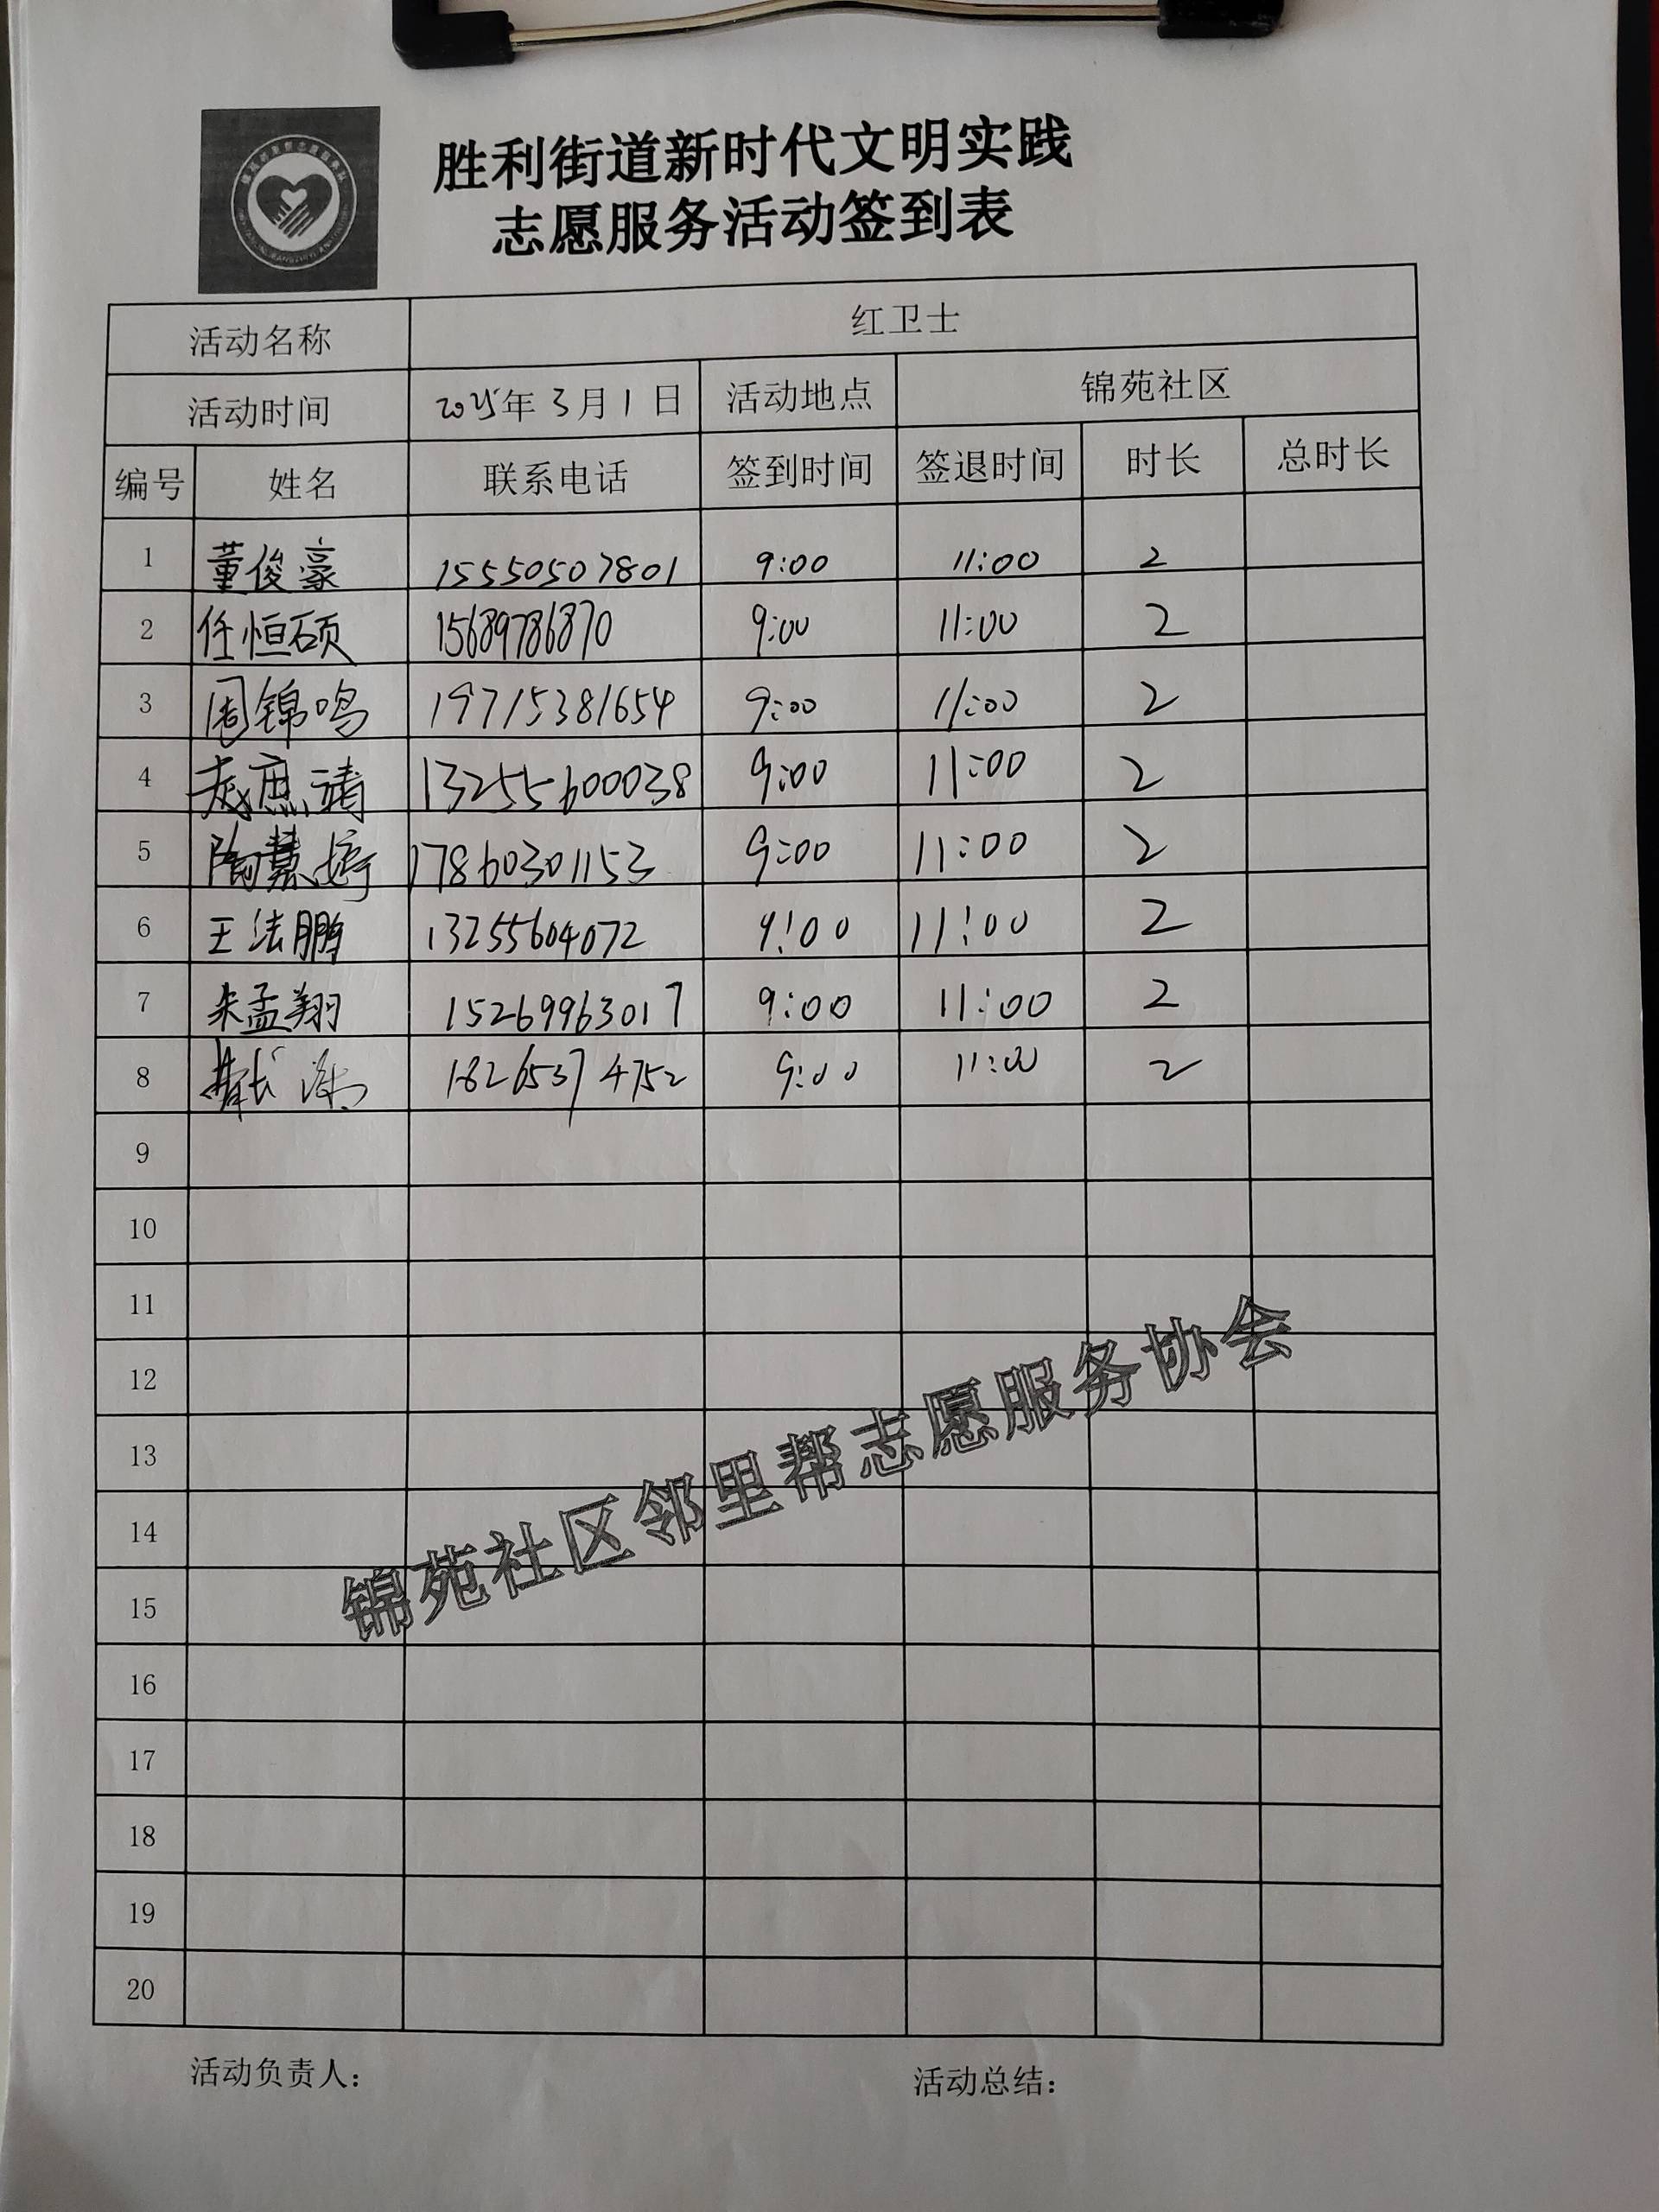 胜利街道新时代文明实践
志愿服务活动签到表
活动名称 红卫士
活动时间 2025年3月1日 活动地点 锦苑社区
编号 姓名 联系电话 签到时间 签退时间 时长 总时长
1 董俊豪 15550507801 9:00 11:00 2
2 任恒硕 15689786870 9:00 11:00 2
3 周锦鸣 19715381654 9:00 11:00 2
4 13255600038 9:00 11:00 2
5 陶慧婷 17860301153 9:00 11:00 2
6 王法鹏 13255604072 9:00 11:00 2
7 朱孟翔 15269963017 9:00 11:00 2
8 18265374752 9:00 11:00 2
9
10
11
12
13
14
15
16
17
18
19
20
锦苑社区邻里帮志愿服务协会
活动负责人： 活动总结：